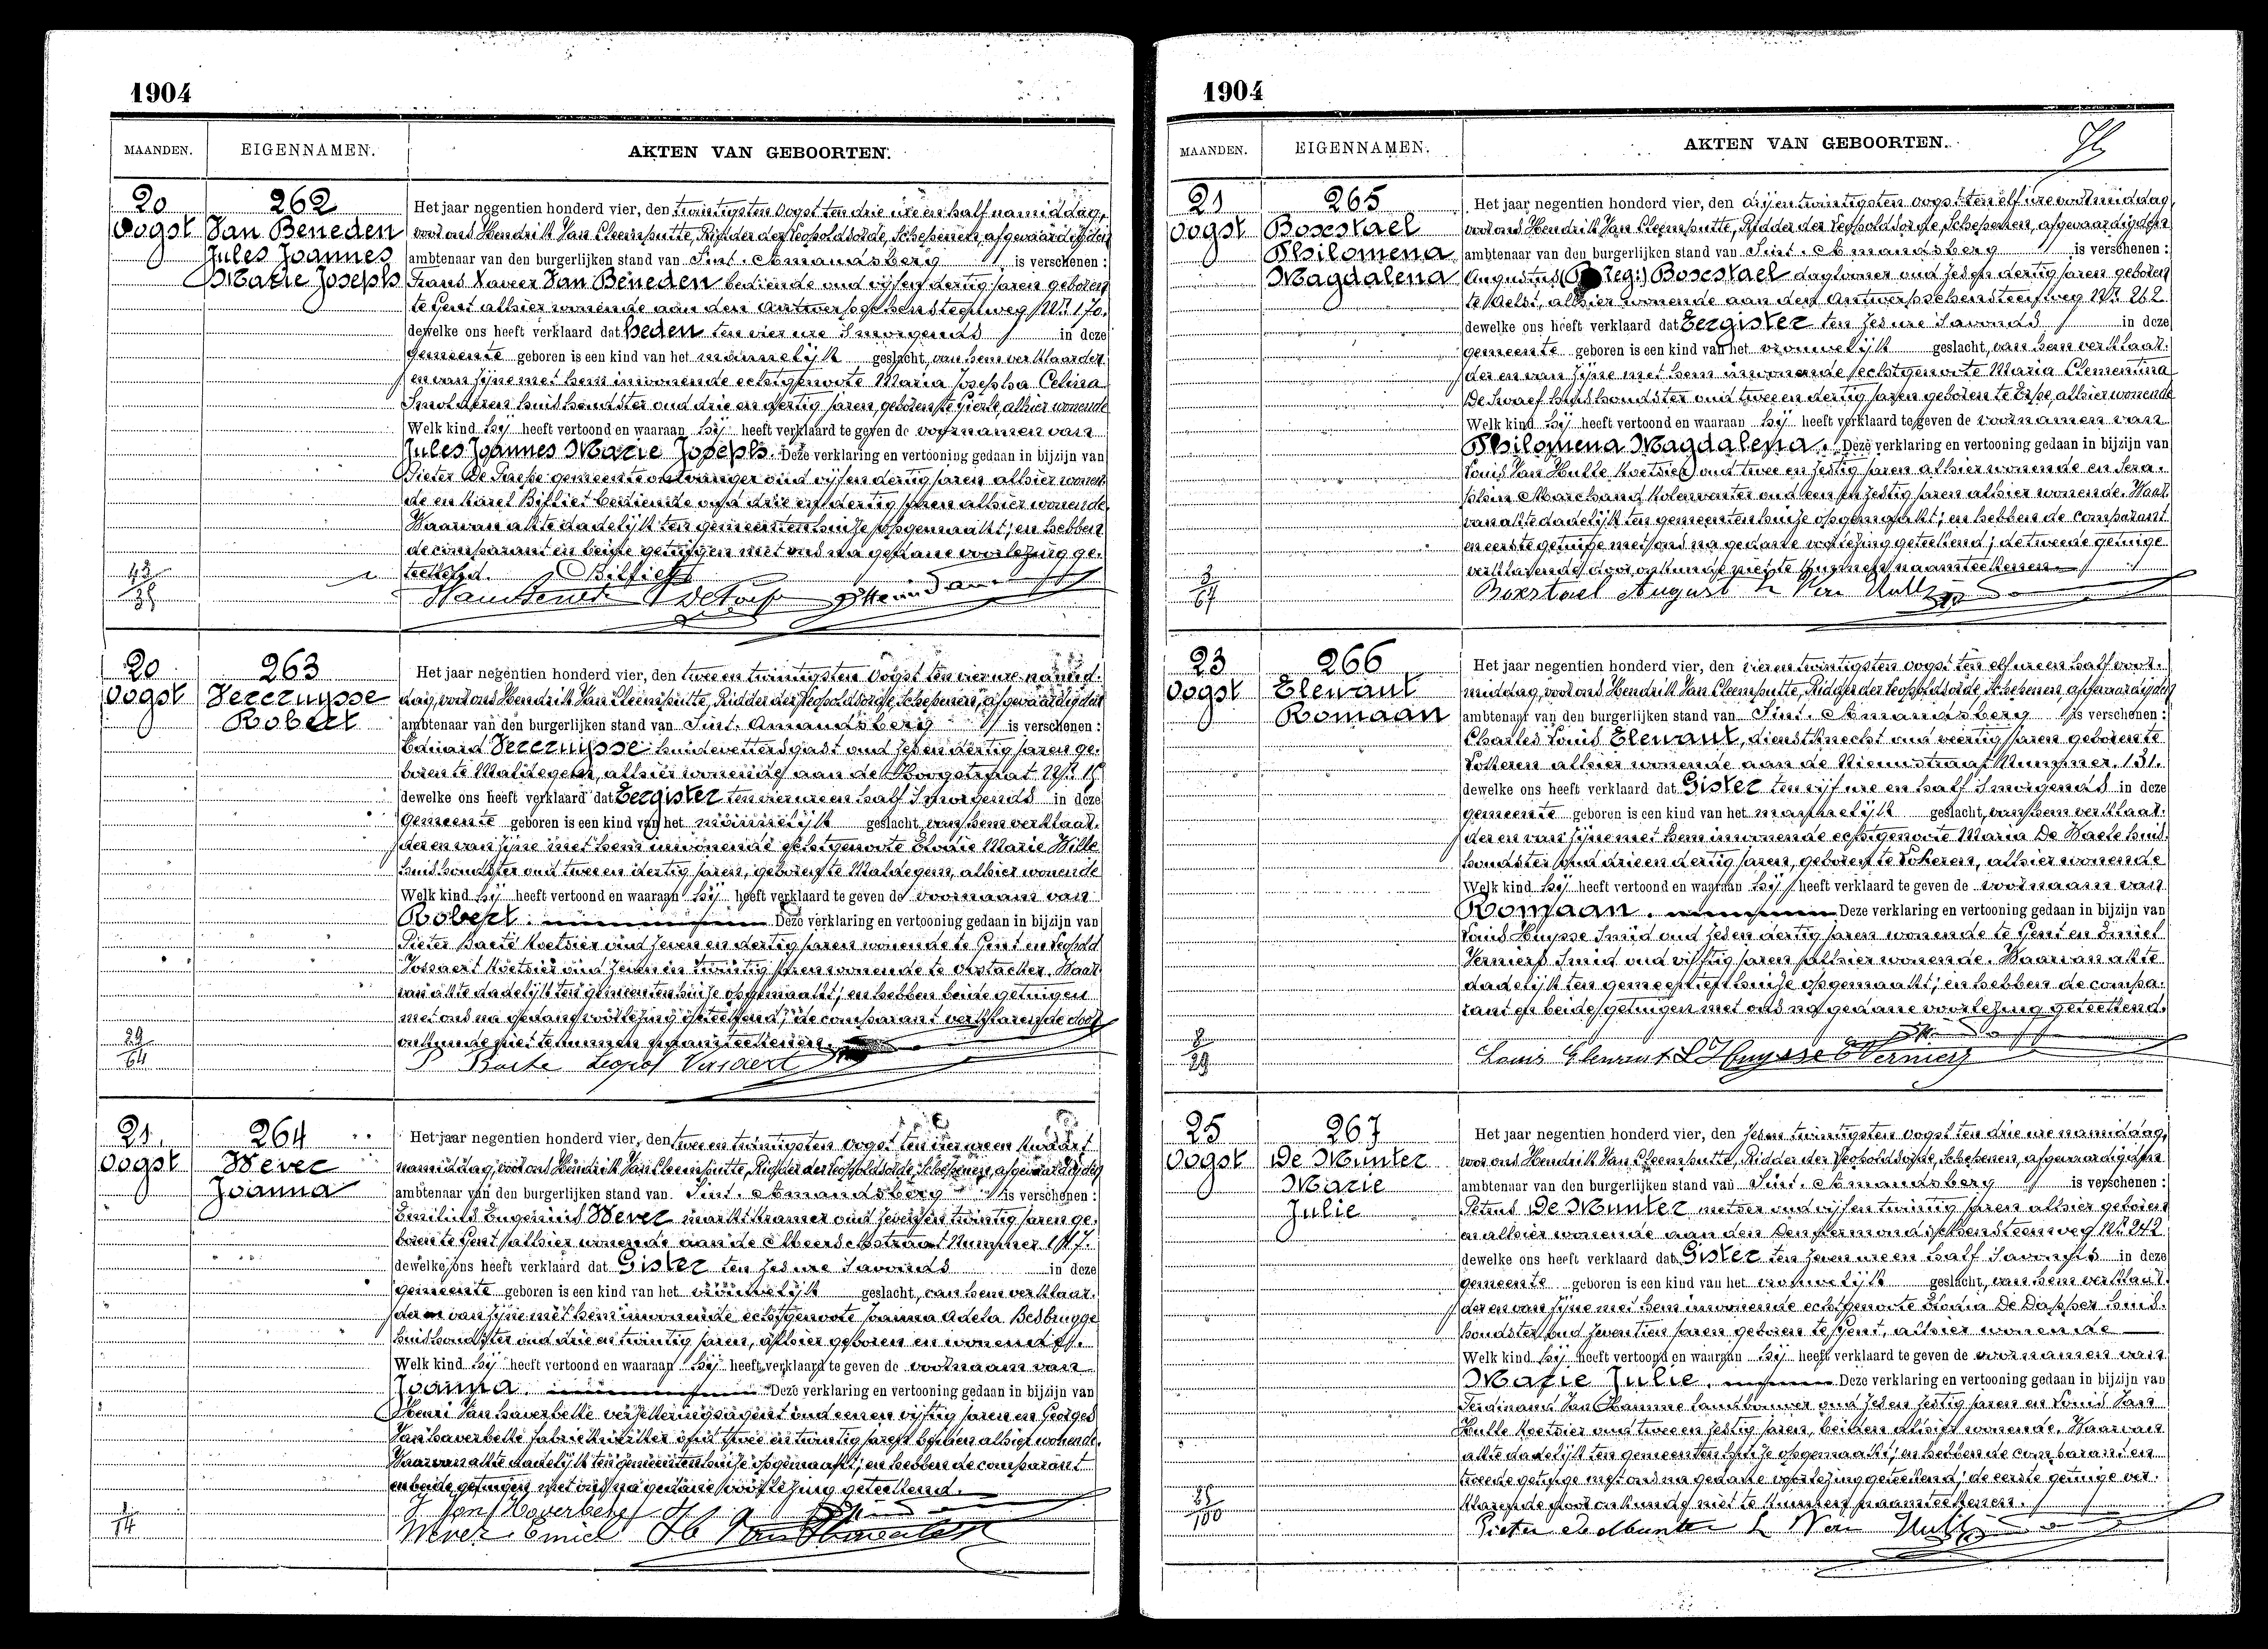 1904
MAANDEN. EIGENNAMEN. AKTEN VAN GEBOORTEN.
20 262
Oogst Van Beneden
Jules Joannes
Marie Joseph
Het jaar negentien honderd vier, den twintigsten Oogst ten drie ure en half namiddag,
voor ons Hendrik Van Cleemputte, Ridder der Leopoldsorde, Schepenen, afgevaardigden
ambtenaar van den burgerlijken stand van Sint-Amandsberg is verschenen :
Frans Xavier Van Beneden bediende oud vijf en dertig jaren geboren
te Gent alhier wonende aan den Antwerpschensteenweg Nr. 170.
dewelke ons heeft verklaard dat Heden ten vier ure 's morgends in deze
gemeente geboren is een kind van het mannelijk geslacht, van hem verklaarder
en van zijne met hem inwonende echtgenoote Maria Josepha Celina
huishoudster oud drie en dertig jaren, geboren te alhier wonende
Welk kind hij heeft vertoond en waaraan hij heeft verklaard te geven de voornamen van
Jules Joannes Marie Joseph. Deze verklaring en vertooning gedaan in bijzijn van
Pieter gemeente ontvanger oud vijf en dertig jaren alhier wonen-
de en Karel Billiet bediende oud drie en dertig jaren alhier wonende.
Waarvan akte dadelijk ten gemeentenhuize opgemaakt; en hebben
de comparant en beide getuigen met ons na gedane voorlezing ge-
teekend.
20 263
Oogst Vereruysse
Robert
Het jaar negentien honderd vier, den twee en twintigsten Oogst ten vier ure namid-
dag, voor ons Hendrik Van Cleemputte, Ridder der Leopoldsorde, Schepenen, afgevaardigden
ambtenaar van den burgerlijken stand van Sint-Amandsberg is verschenen :
Eduard Vereruysse oud zes en dertig jaren ge-
boren te Maldegem, alhier wonende aan de
dewelke ons heeft verklaard dat Eergister ten vier ure en half 's morgends in deze
gemeente geboren is een kind van het mannelijk geslacht, van hem verklaar-
der en van zijne met hem inwonende echtgenoote Marie Wille
huishoudster oud twee en dertig jaren, geboren te Maldegem, alhier wonende
Welk kind hij heeft vertoond en waaraan hij heeft verklaard te geven de voornaam van
Robert. Deze verklaring en vertooning gedaan in bijzijn van
Pieter Baete koetsier oud zeven en dertig jaren wonende te Gent en Leopold
koetsier oud zeven en twintig jaren wonende te Oostacker. Waar-
van akte dadelijk ten gemeentenhuize opgemaakt; en hebben beide getuigen
met ons na gedane voorlezing geteekend; de comparant verklarende door
onkunde niet te kunnen naamteekenen.
21 264
Oogst Wever
Joanna
Het jaar negentien honderd vier, den twee en twintigsten Oogst ten vier ure en kwaart
namiddag, voor ons Hendrik Van Cleemputte, Ridder der Leopoldsorde, Schepenen, afgevaardigden
ambtenaar van den burgerlijken stand van Sint-Amandsberg is verschenen :
Emilius Eugenius Wever marktkramer oud zeven en twintig jaren ge-
boren te Gent alhier wonende aan de Nummer
dewelke ons heeft verklaard dat Gister ten zes ure 's avonds in deze
gemeente geboren is een kind van het vrouwelijk geslacht, van hem verklaar-
der en van zijne met hem inwonende echtgenoote Joanna Adela Besbrugge
huishoudster oud drie en twintig jaren, alhier geboren en wonende.
Welk kind hij heeft vertoond en waaraan hij heeft verklaard te geven de voornaam van
Joanna. Deze verklaring en vertooning gedaan in bijzijn van
Henri Van Haverbeke verzekeringsagent oud een en vijftig jaren en Georges
Van Haverbeke oud twee en twintig jaren beiden alhier wonende.
Waarvan akte dadelijk ten gemeentenhuize opgemaakt; en hebben de comparant
en beide getuigen met ons na gedane voorlezing geteekend.
Wever Emiel
1904
MAANDEN. EIGENNAMEN. AKTEN VAN GEBOORTEN.
21 265
Oogst Boxstael
Philomena
Magdalena
Het jaar negentien honderd vier, den drij en twintigsten oogst ten elf ure voormiddag,
voor ons Hendrik Van Cleemputte, Ridder der Leopoldsorde, Schepenen, afgevaardigden
ambtenaar van den burgerlijken stand van Sint-Amandsberg is verschenen :
Augustus Boxstael daglooner oud zes en dertig jaren geboren
te alhier wonende aan den Antwerpschensteenweg Nr. 262
dewelke ons heeft verklaard dat Eergister ten zes ure 's avonds in deze
gemeente geboren is een kind van het vrouwelijk geslacht, van hem verklaar-
der en van zijne met hem inwonende echtgenoote Maria Clementina
huishoudster oud twee en dertig jaren geboren te Erpe, alhier wonende
Welk kind hij heeft vertoond en waaraan hij heeft verklaard te geven de voornamen van
Philomena Magdalena. Deze verklaring en vertooning gedaan in bijzijn van
Louis Van Hulle koetsier oud twee en zestig jaren alhier wonende en Sera-
phin Marchand oud een en zestig jaren alhier wonende. Waar-
van akte dadelijk ten gemeentenhuize opgemaakt; en hebben de comparant
en eerste getuige met ons na gedane voorlezing geteekend; de tweede getuige
verklarende door onkunde niet te kunnen naamteekenen.
Boxstael August L Van Hulle
23 266
Oogst Clenaut
Romaan
Het jaar negentien honderd vier, den vier en twintigsten oogst ten elf ure en half voor-
middag, voor ons Hendrik Van Cleemputte, Ridder der Leopoldsorde, Schepenen, afgevaardigden
ambtenaar van den burgerlijken stand van Sint-Amandsberg is verschenen :
Charles Louis Clenaut, dienstknecht oud veertig jaren geboren te
Lokeren alhier wonende aan de Nieuwstraat Nummer 131.
dewelke ons heeft verklaard dat Gister ten vijf ure en half 's morgends in deze
gemeente geboren is een kind van het mannelijk geslacht, van hem verklaar-
der en van zijne met hem inwonende echtgenoote Maria De Waele huis-
houdster oud drie en dertig jaren, geboren te Lokeren, alhier wonende
Welk kind hij heeft vertoond en waaraan hij heeft verklaard te geven de voornaam van
Romaan. Deze verklaring en vertooning gedaan in bijzijn van
Louis Huysse smid oud zes en dertig jaren wonende te Gent en Emiel
Verniers smid oud vijftig jaren alhier wonende. Waarvan akte
dadelijk ten gemeentenhuize opgemaakt; en hebben de compa-
rant en beide getuigen met ons na gedane voorlezing geteekend.
25 267
Oogst De Munter
Marie
Julie
Het jaar negentien honderd vier, den zes en twintigsten oogst ten drie ure namiddag,
voor ons Hendrik Van Cleemputte, Ridder der Leopoldsorde, Schepenen, afgevaardigden
ambtenaar van den burgerlijken stand van Sint-Amandsberg is verschenen :
Petrus De Munter metser oud vijf en twintig jaren alhier geboren
en alhier wonende aan den Dendermondschensteenweg Nr. 242
dewelke ons heeft verklaard dat Gister ten zeven ure en half 's avonds in deze
gemeente geboren is een kind van het vrouwelijk geslacht, van hem verklaar-
der en van zijne met hem inwonende echtgenoote Maria De Dapper huis-
houdster oud zeventien jaren geboren te Gent, alhier wonende
Welk kind hij heeft vertoond en waaraan hij heeft verklaard te geven de voornamen van
Marie Julie. Deze verklaring en vertooning gedaan in bijzijn van
Ferdinand Van Hamme landbouwer oud zes en zestig jaren en Louis Van
Hulle koetsier oud twee en zestig jaren, beiden alhier wonende. Waarvan
akte dadelijk ten gemeentenhuize opgemaakt; en hebben de comparant en
tweede getuige met ons na gedane voorlezing geteekend; de eerste getuige ver-
klarende door onkunde niet te kunnen naamteekenen.
Pieter De Munter L Van Hulle